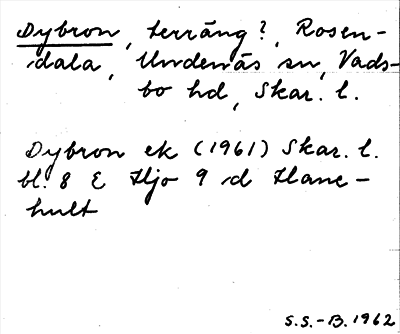 Dybron, terräng?, Rosen-
dala, Undenäs sn, Vads-
bo hd, Skar. l.
Dybron ek (1961) Skar. l.
bl. 8 E Hjo 9 d Hane-
hult
S.S.-B. 1962